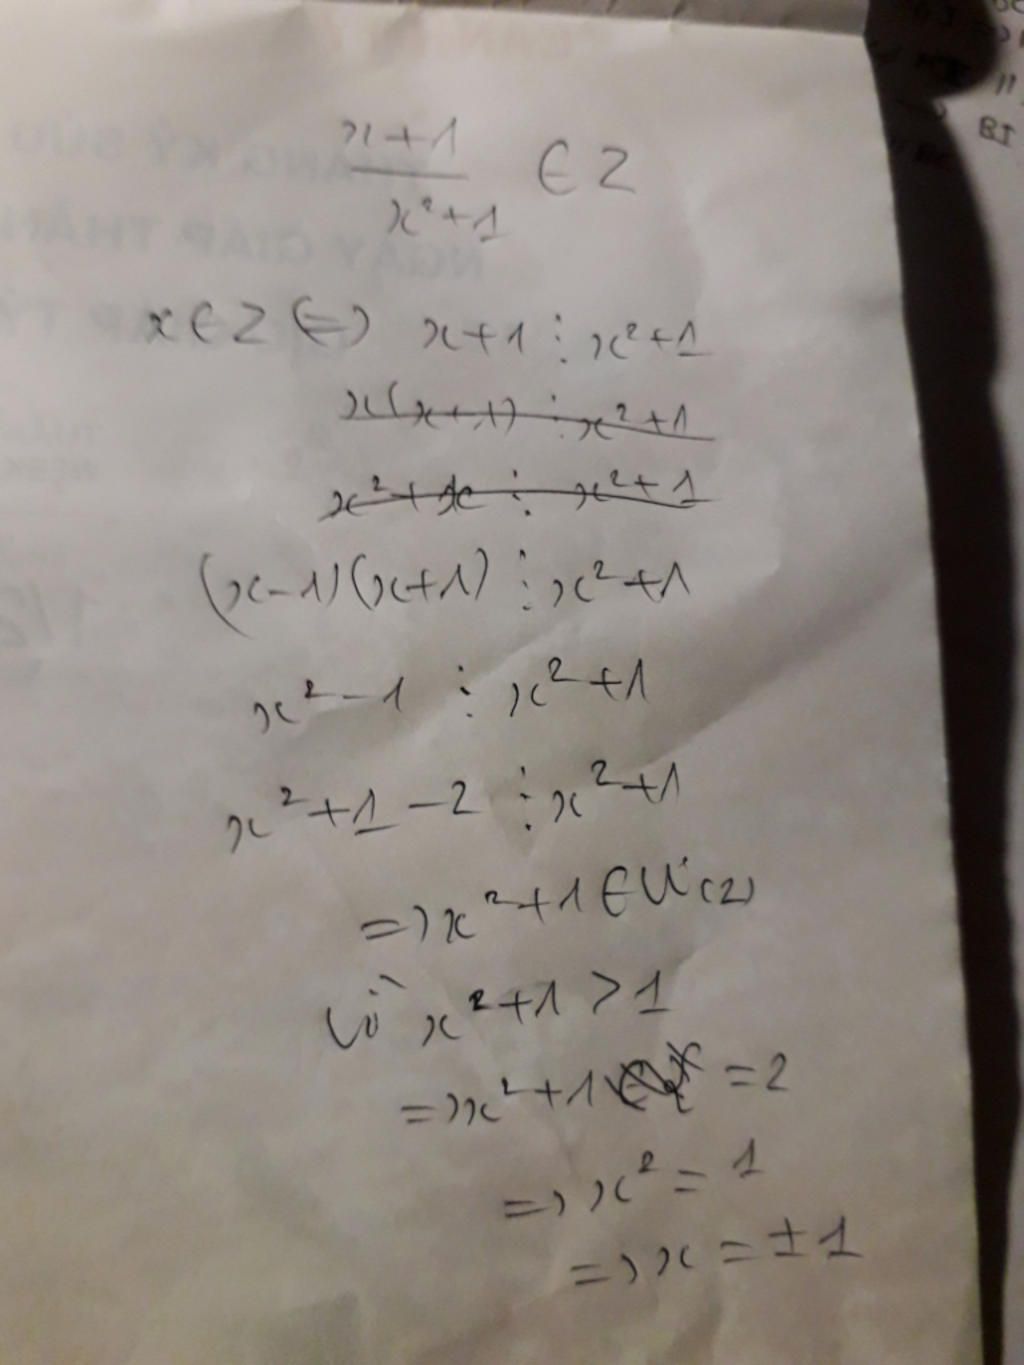 x+1
x²+1 ∈ Z
x ∈ Z (=) x+1 ⋮ x²+1
x(x+1) ⋮ x²+1
x²+x ⋮ x²+1
(x-1)(x+1) ⋮ x²+1
x²-1 ⋮ x²+1
x²+1-2 ⋮ x²+1
=> x²+1 ∈ Ư(2)
Vì x²+1 > 1
=> x²+1 = 2
=> x² = 1
=> x = ±1